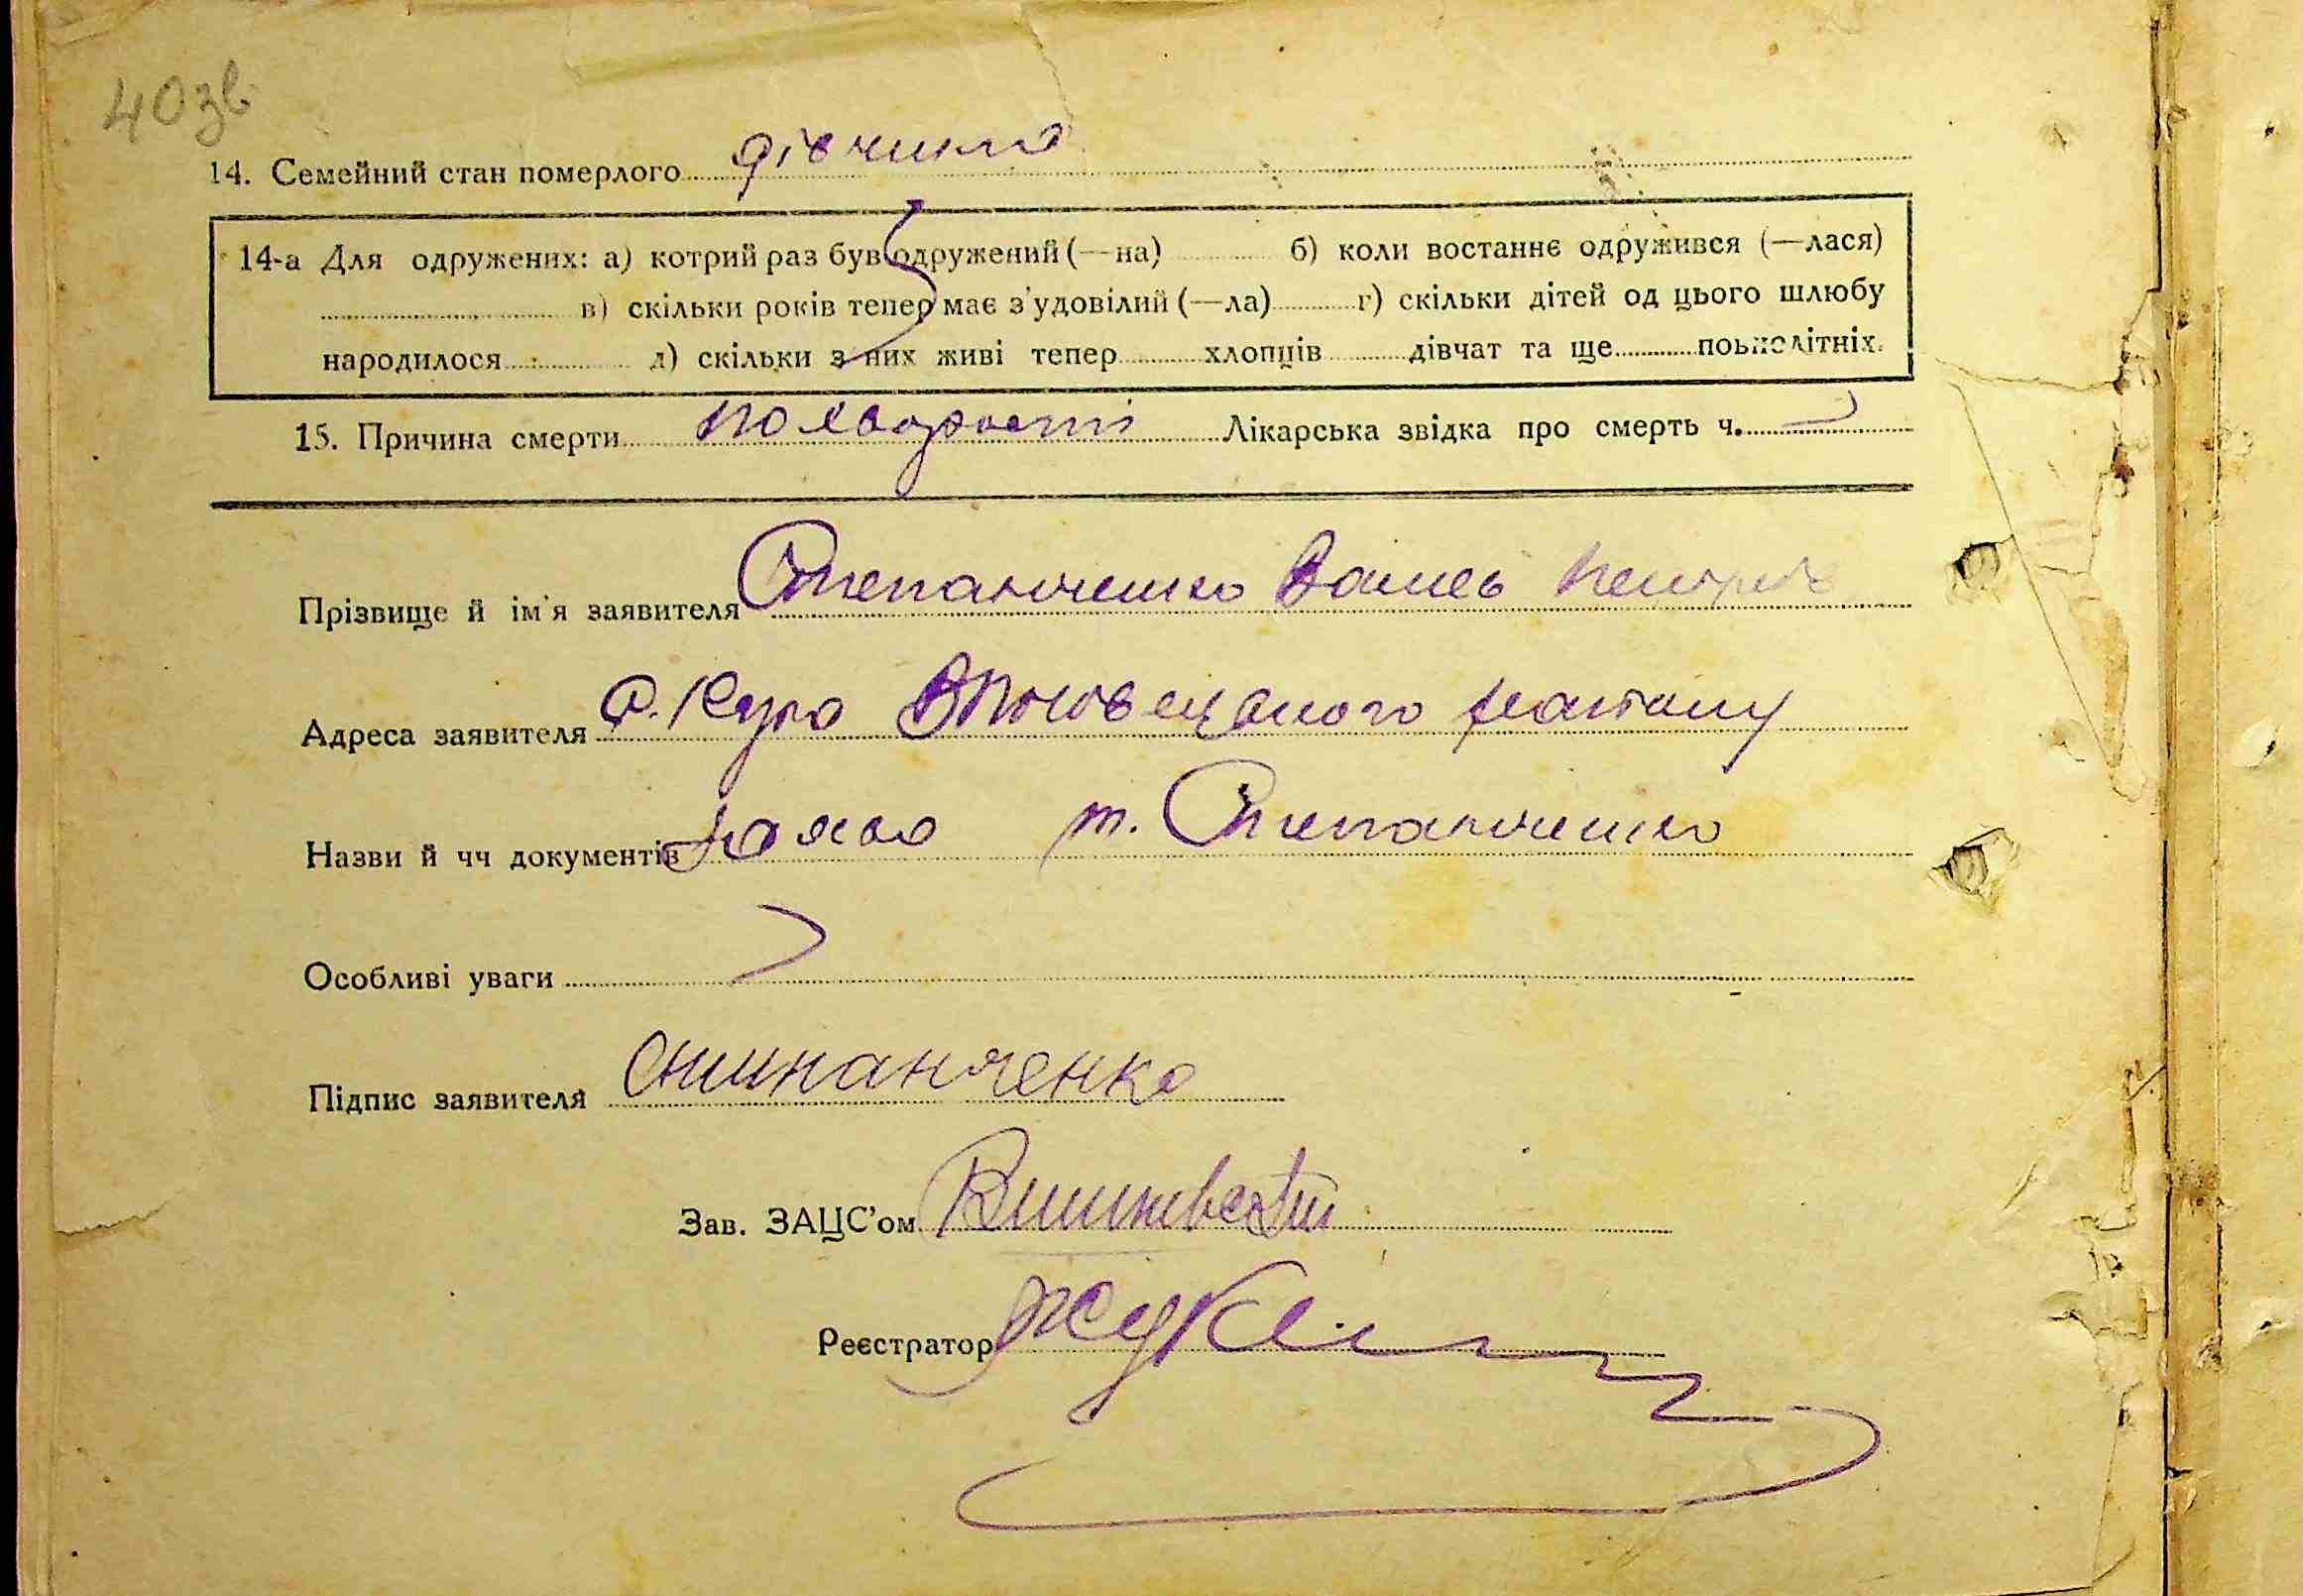 40зв
14. Семейний стан померлого дівчина
14-а Для одружених: а) котрий раз був одружений (—на) б) коли востаннє одружився (—лася)
в) скільки років тепер має з'удовілий (—ла) г) скільки дітей од цього шлюбу
народилося д) скільки з них живі тепер хлопців дівчат та ще повнолітніх.
15. Причина смерти по хворості Лікарська звідка про смерть ч.
Прізвище й ім'я заявителя Степанченко
Адреса заявителя району
Назви й чч документів заява т. Степанченко
Особливі уваги
Підпис заявителя
Зав. ЗАЦС'ом
Реєстратор